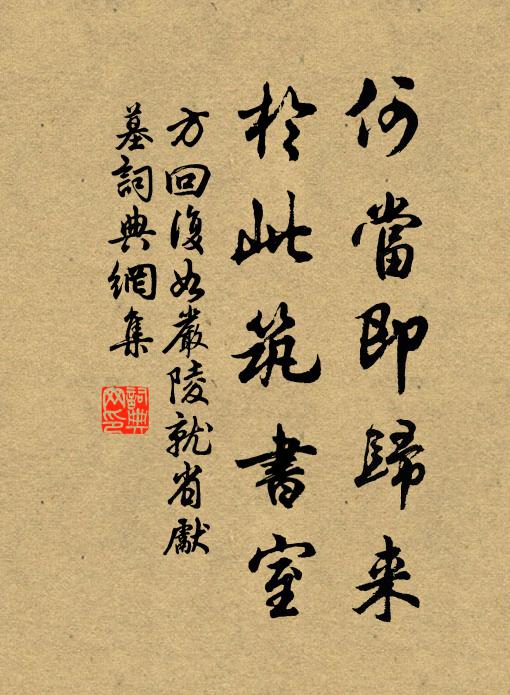 何當即歸来
於此筑書室
方回復如嚴陵就省獻
墓詞典網集
詞典网印